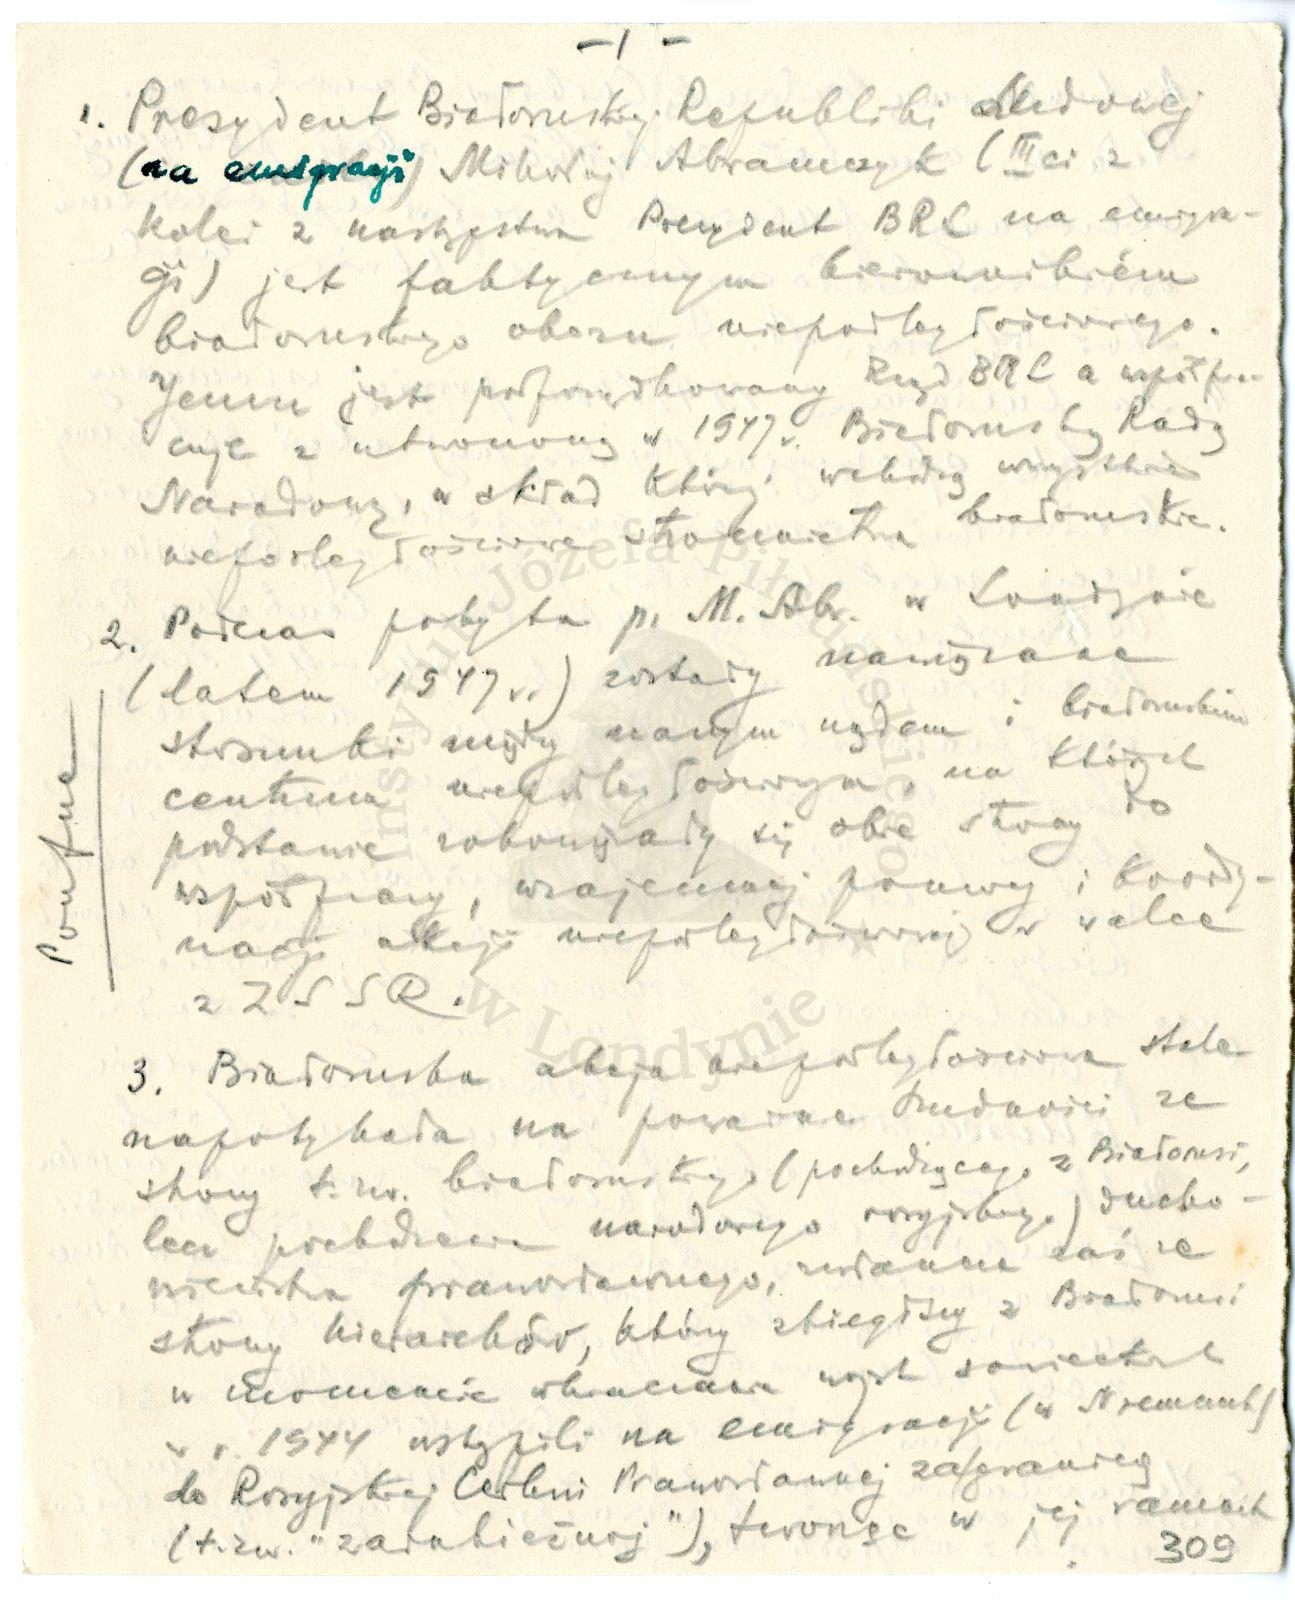 - 1 -
1. Prezydent Białoruskiej Republiki Ludowej
(na emigracji) Mikołaj Abramczyk (III ci z
kolei z następstwa Prezydent BRL na emigra-
cji) jest faktycznym kierownikiem
białoruskiego obozu niepodległościowego.
Jemu jest podporządkowany Rząd BRL a współpra-
cuje z utworzoną w 1947 r. Białoruską Radą
Narodową, w skład której wchodzą wszystkie
niepodległościowe stronnictwa białoruskie.
2. Podczas pobytu p. M. Abr. w Londynie
(latem 1947 r.) zostały nawiązane
stosunki między naszym rządem i białoruskim
centrum niepodległościowym, na których
podstawie zobowiązały się obie strony do
współpracy, wzajemnej pomocy i koordy-
nacji akcji niepodległościowej w walce
z ZSSR.
Poufne
3. Białoruska akcja niepodległościowa stale
napotykała na poważne trudności ze
strony t.zw. białoruskiego (pochodzącego z Białorusi,
lecz pochodzenia narodowego rosyjskiego) ducho-
wieństwa prawosławnego, zwłaszcza zaś ze
strony hierarchów, którzy zbiegłszy z Białorusi
w momencie wkraczania wojsk sowieckich
w r. 1944 wstąpili na emigracji (w Niemczech)
do Rosyjskiej Cerkwi Prawosławnej zagranicą
(t.zw. "zarubieżnoj"), tworząc w jej ramach
309
Instytut Józefa Piłsudskiego
w Londynie